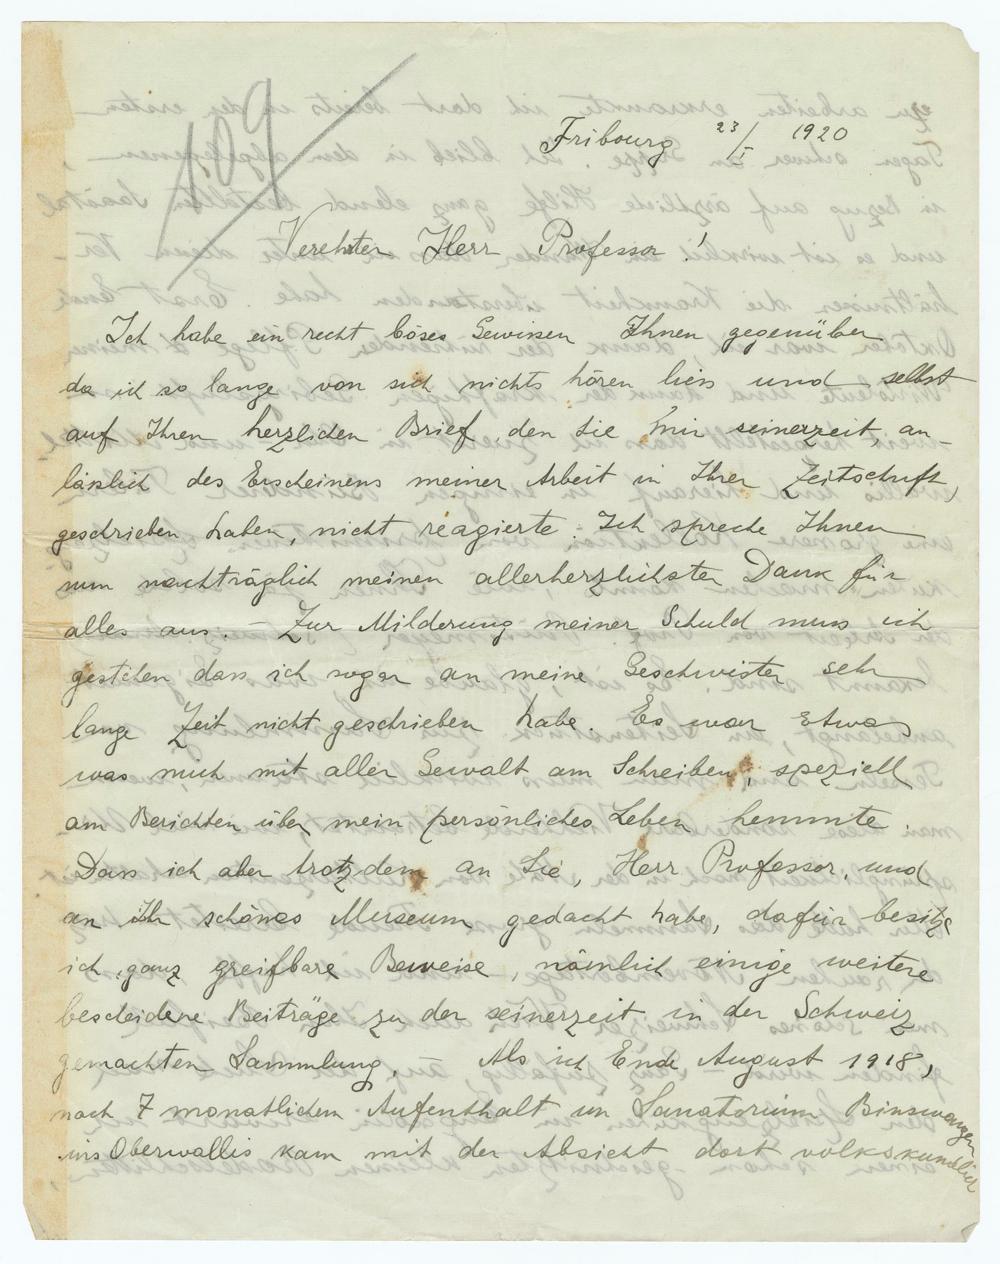 109
Fribourg 23/I 1920
Verehrter Herr Professor!
Ich habe ein recht böses Gewissen Ihnen gegenüber
da ich so lange von sich nichts hören liess und selbst
auf Ihren herzlichen Brief, den Sie mir seinerzeit, an-
lässlich des Erscheinens meiner Arbeit in Ihrer Zeitschrift,
geschrieben haben, nicht reagierte. Ich spreche Ihnen
nun nachträglich meinen allerherzlichsten Dank für
alles aus. – Zur Milderung meiner Schuld muss ich
gestehen dass ich sogar an meine Geschwister sehr
lange Zeit nicht geschrieben habe. Es war Etwas
was mich mit aller Gewalt am Schreiben, speziell
am Berichten über mein persönliches Leben hemmte.
Dass ich aber trotzdem an Sie, Herr Professor, und
an Ihr schönes Museum gedacht habe, dafür besitze
ich ganz greifbare Beweise, nämlich einige weitere
bescheidene Beiträge zu der seinerzeit in der Schweiz
gemachten Sammlung. – Als ich Ende August 1918,
nach 7 monatlichem Aufenthalt im Sanatorium Binswanger
ins Oberwallis kam mit der Absicht dort volkskundlich